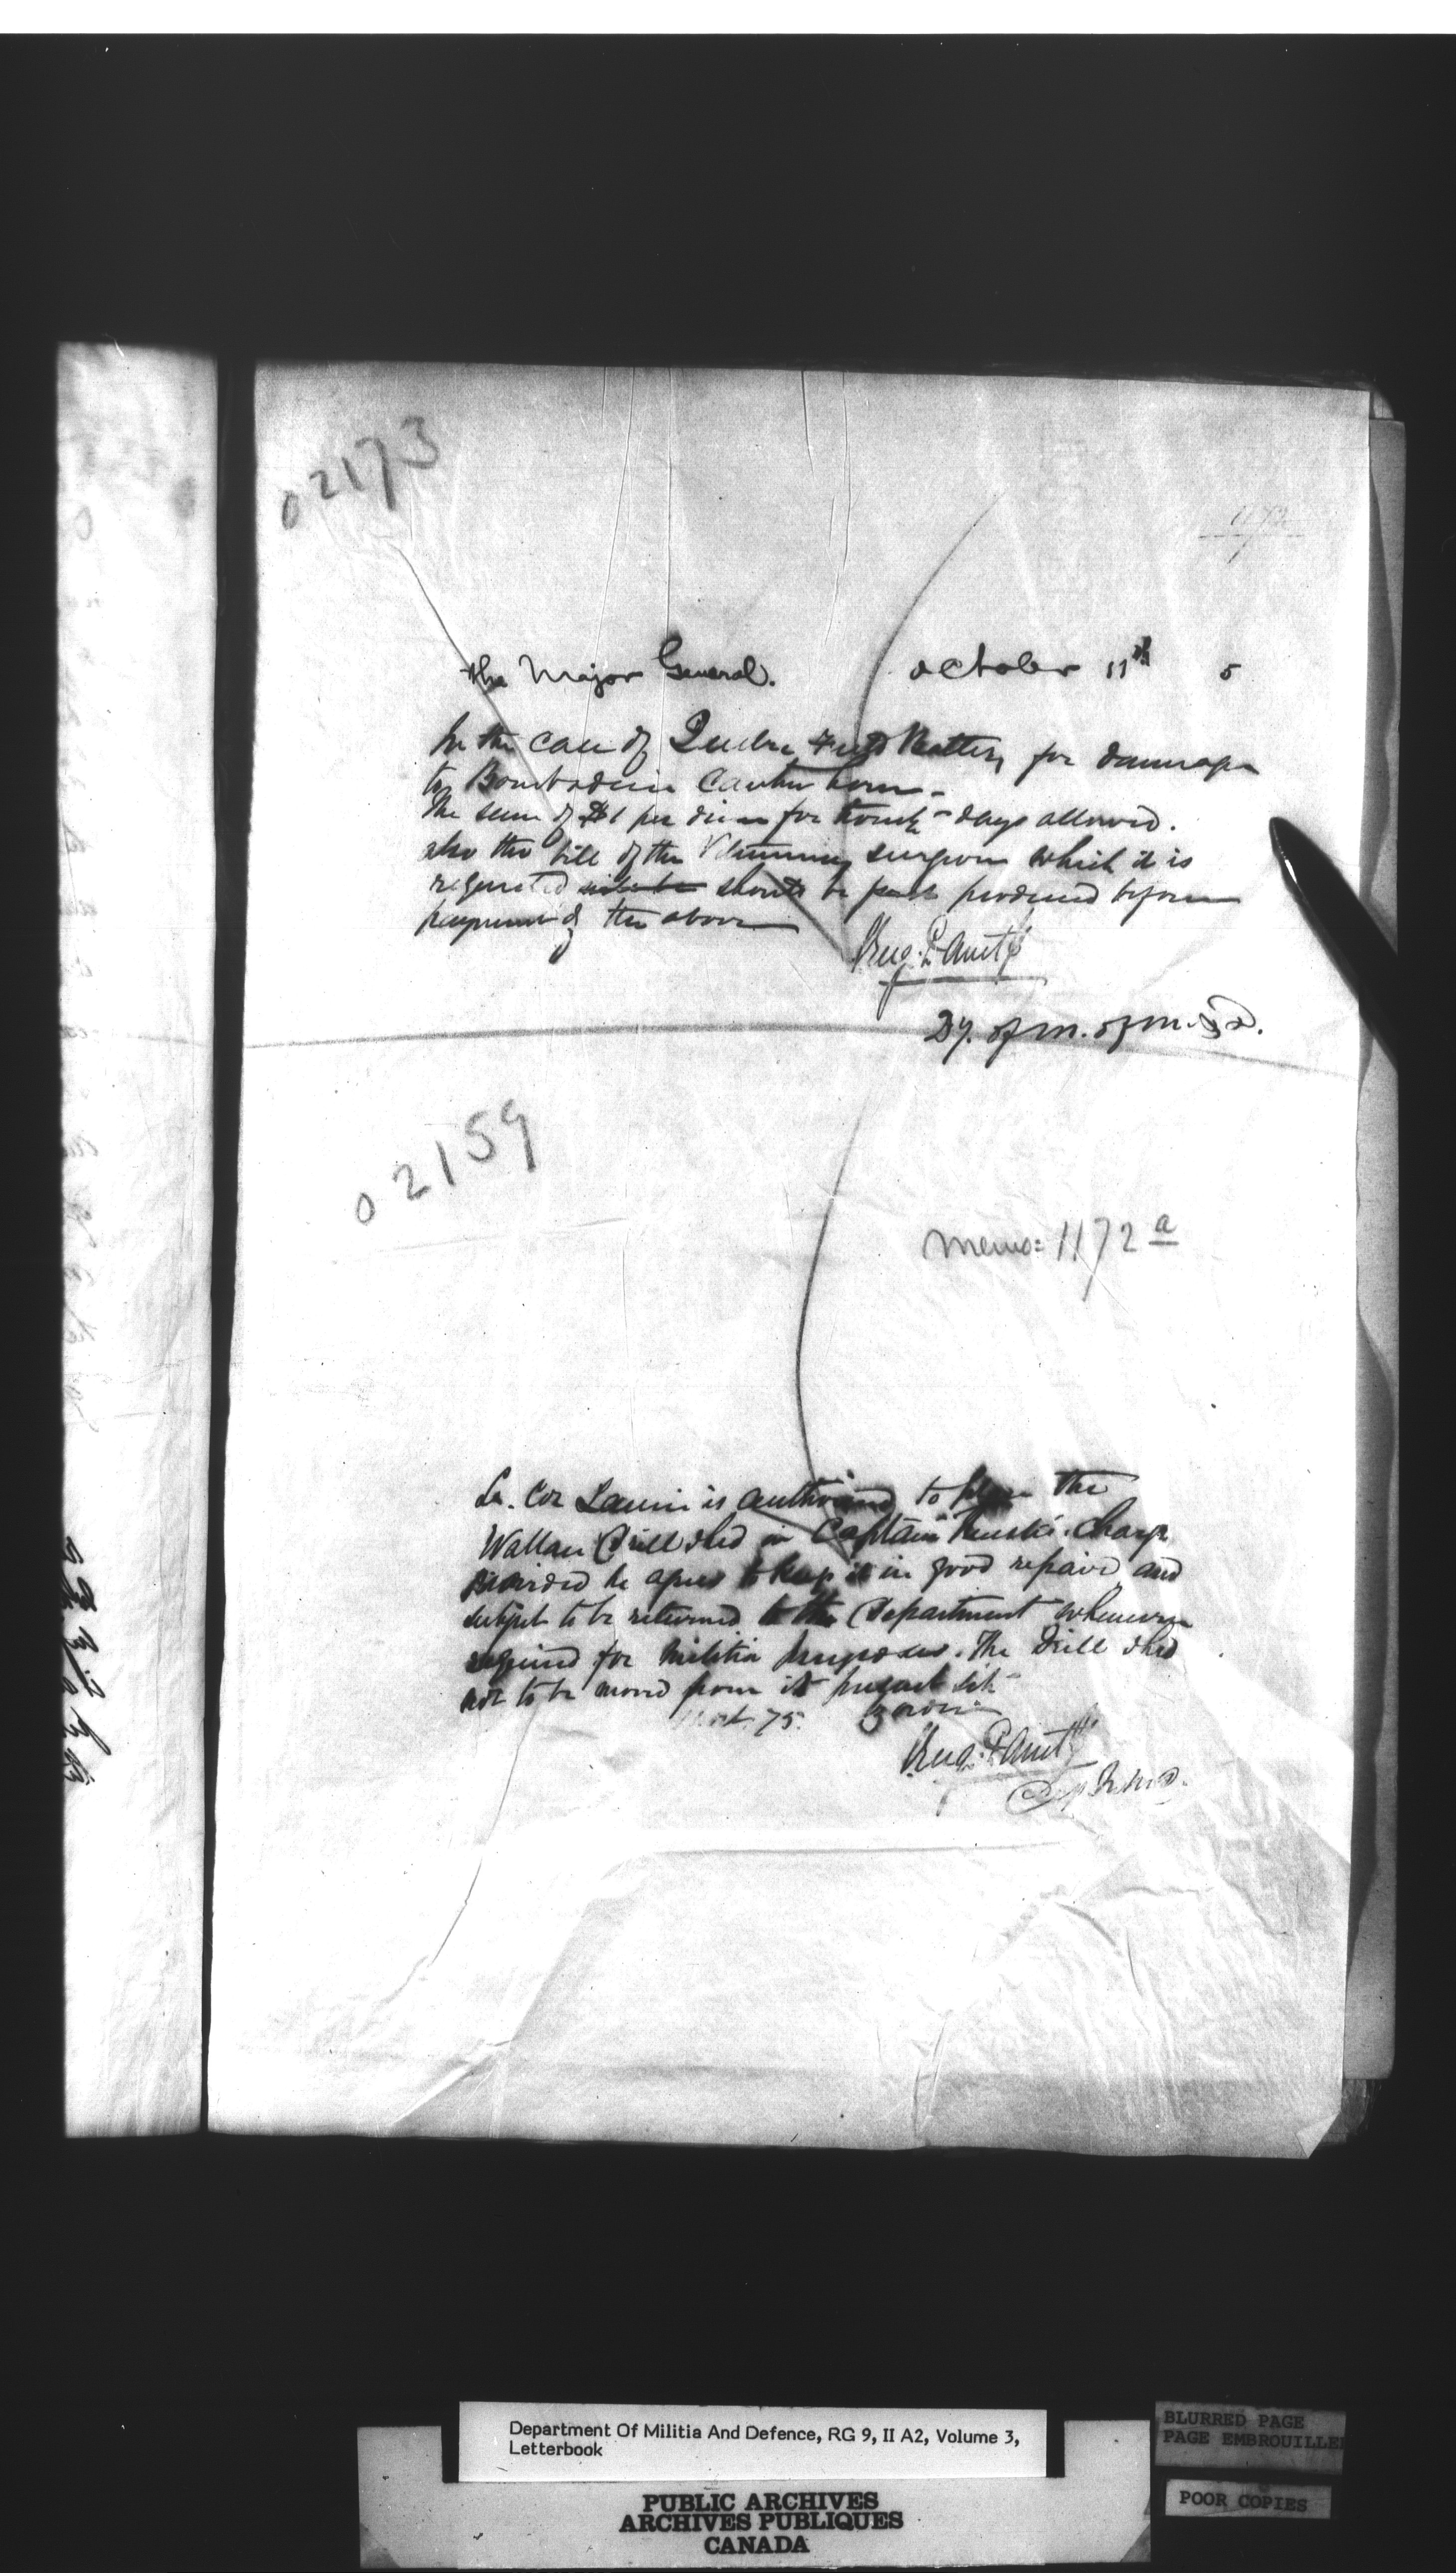 02173
1172
The Major General. October 11th 5
In the case of Quebec Field Battery for damages
to Bombadier horse.
The sum of $1 per diem for days allowed.
also the bill of the Veterinary surgeon which it is
requested should be produced before
payment of the above
Dy. of M. of M. & D.
02159
Memo: 1172 a
Lt. Col Laurie is authorized to place the
Wallace Drill shed in Captain charge
provided he agrees to keep it in good repair and
subject to be returned to the Department whenever
required for Militia purposes. The Drill shed
not to be moved from its present site
75.
Department Of Militia And Defence, RG 9, II A2, Volume 3,
Letterbook
BLURRED PAGE
PAGE EMBROUILLEE
POOR COPIES
PUBLIC ARCHIVES
ARCHIVES PUBLIQUES
CANADA